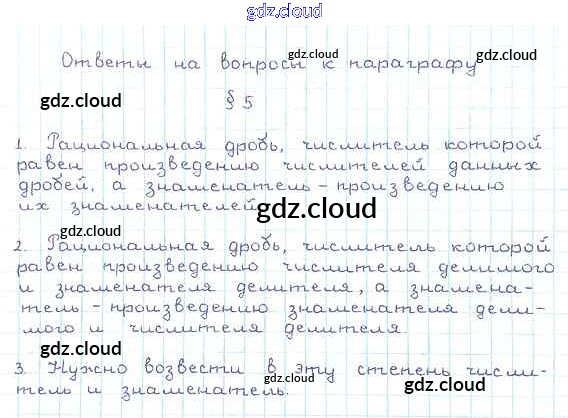 gdz.cloud
gdz.cloud
Ответы на вопросы к параграфу
gdz.cloud
gdz.cloud
§ 5
gdz.cloud
1. Рациональная дробь, числитель которой
равен произведению числителей данных
дробей, а знаменатель - произведению
их знаменателей
gdz.cloud
2. Рациональная дробь, числитель которой
равен произведению числителя делимого
и знаменателя делителя, а знамена-
тель - произведению знаменателя дели-
мого и числителя делителя
gdz.cloud
3. Нужно возвести в эту степень числи-
тель и знаменатель.
gdz.cloud